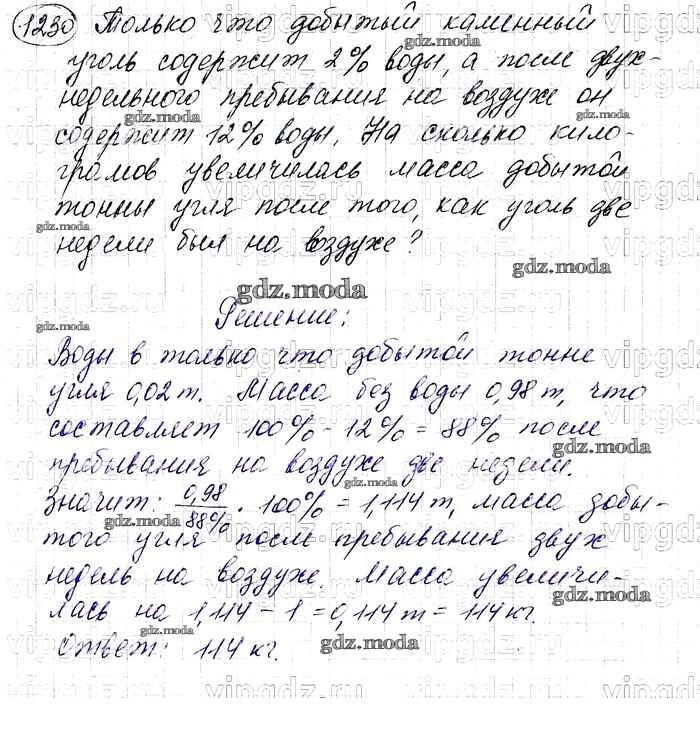 1230 Только что добытый каменный
уголь содержит 2% воды, а после двух-
недельного пребывания на воздухе он
содержит 12% воды. На сколько кило-
грамов увеличилась масса добытой
тонны угля после того, как уголь две
недели был на воздухе?
gdz.moda
Решение:
Воды в только что добытой тонне
угля 0,02 т. Масса без воды 0,98 т, что
составляет 100% - 12% = 88% после
пребывания на воздухе две недели.
Значит: 0,98/88% · 100% = 1,114 т, масса добы-
того угля после пребывания двух
недель на воздухе. Масса увеличи-
лась на 1,114 - 1 = 0,114 т = 114 кг.
Ответ: 114 кг.